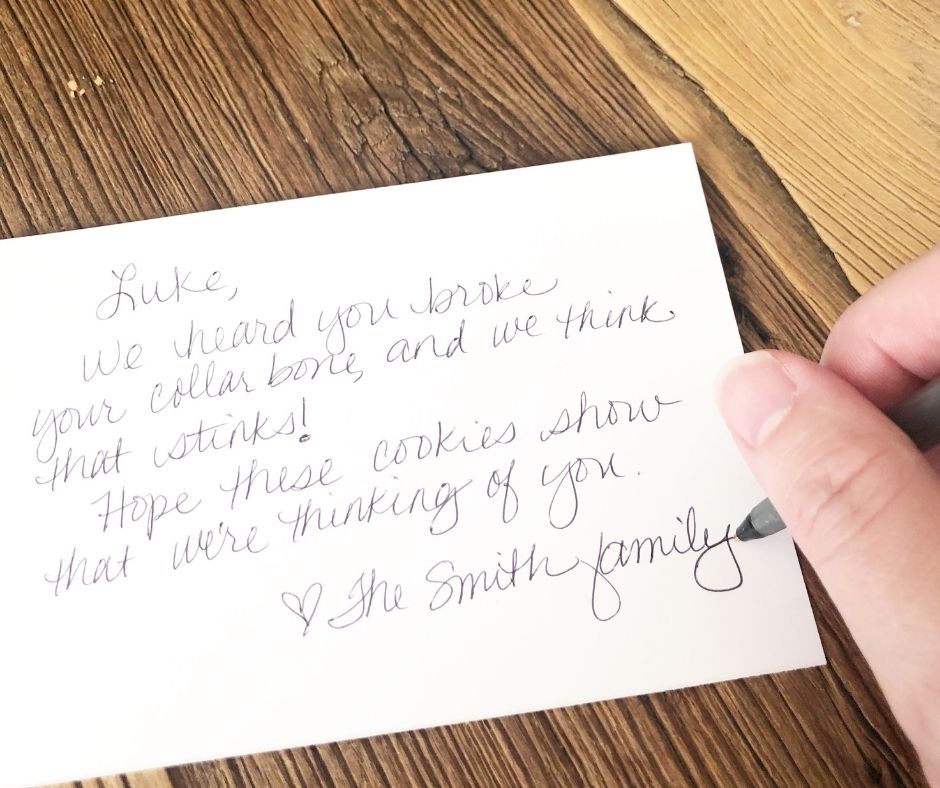 Luke,
We heard you broke
your collar bone, and we think
that stinks!
Hope these cookies show
that we're thinking of you.
♡ The Smith family